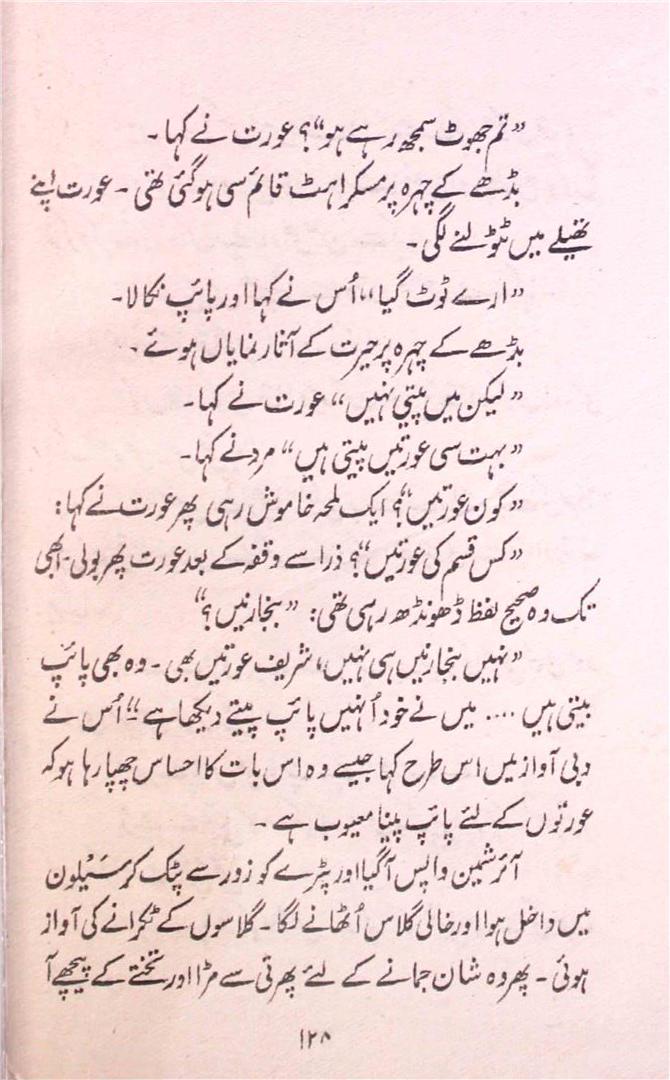 ”تم جھوٹ سمجھ رہے ہو“؟ عورت نے کہا۔
بڈھے کے چہرہ پر مسکراہٹ قائم سی ہوگئی تھی۔ عورت اپنے
تھیلے میں ٹٹولنے لگی۔
”ارے ٹوٹ گیا“ اُس نے کہا اور پائپ نکالا۔
بڈھے کے چہرہ پر حیرت کے آثار نمایاں ہوئے۔
”لیکن میں پیتی نہیں“ عورت نے کہا۔
”بہت سی عورتیں پیتی ہیں“ مرد نے کہا۔
”کون عورتیں“؟ ایک لمحہ خاموش رہی پھر عورت نے کہا:
”کس قسم کی عورتیں“؟ ذرا سے وقفہ کے بعد عورت پھر بولی۔ ابھی
تک وہ صحیح لفظ ڈھونڈھ رہی تھی: ”بنجارنیں؟“
”نہیں بنجارنیں ہی نہیں، شریف عورتیں بھی۔ وہ بھی پائپ
پیتی ہیں .... میں نے خود اُنہیں پائپ پیتے دیکھا ہے۔“ اُس نے
دبی آواز میں اس طرح کہا جیسے وہ اس بات کا احساس چھپا رہا ہو کہ
عورتوں کے لئے پائپ پینا معیوب ہے۔
آئرشمین واپس آگیا اور پٹرے کو زور سے پٹک کر سَیلون
میں داخل ہوا اور خالی گلاس اُٹھانے لگا۔ گلاسوں کے ٹکرانے کی آواز
ہوئی۔ پھر وہ شان جمانے کے لئے پھرتی سے مڑا اور تختے کے پیچھے آ
۱۲۸